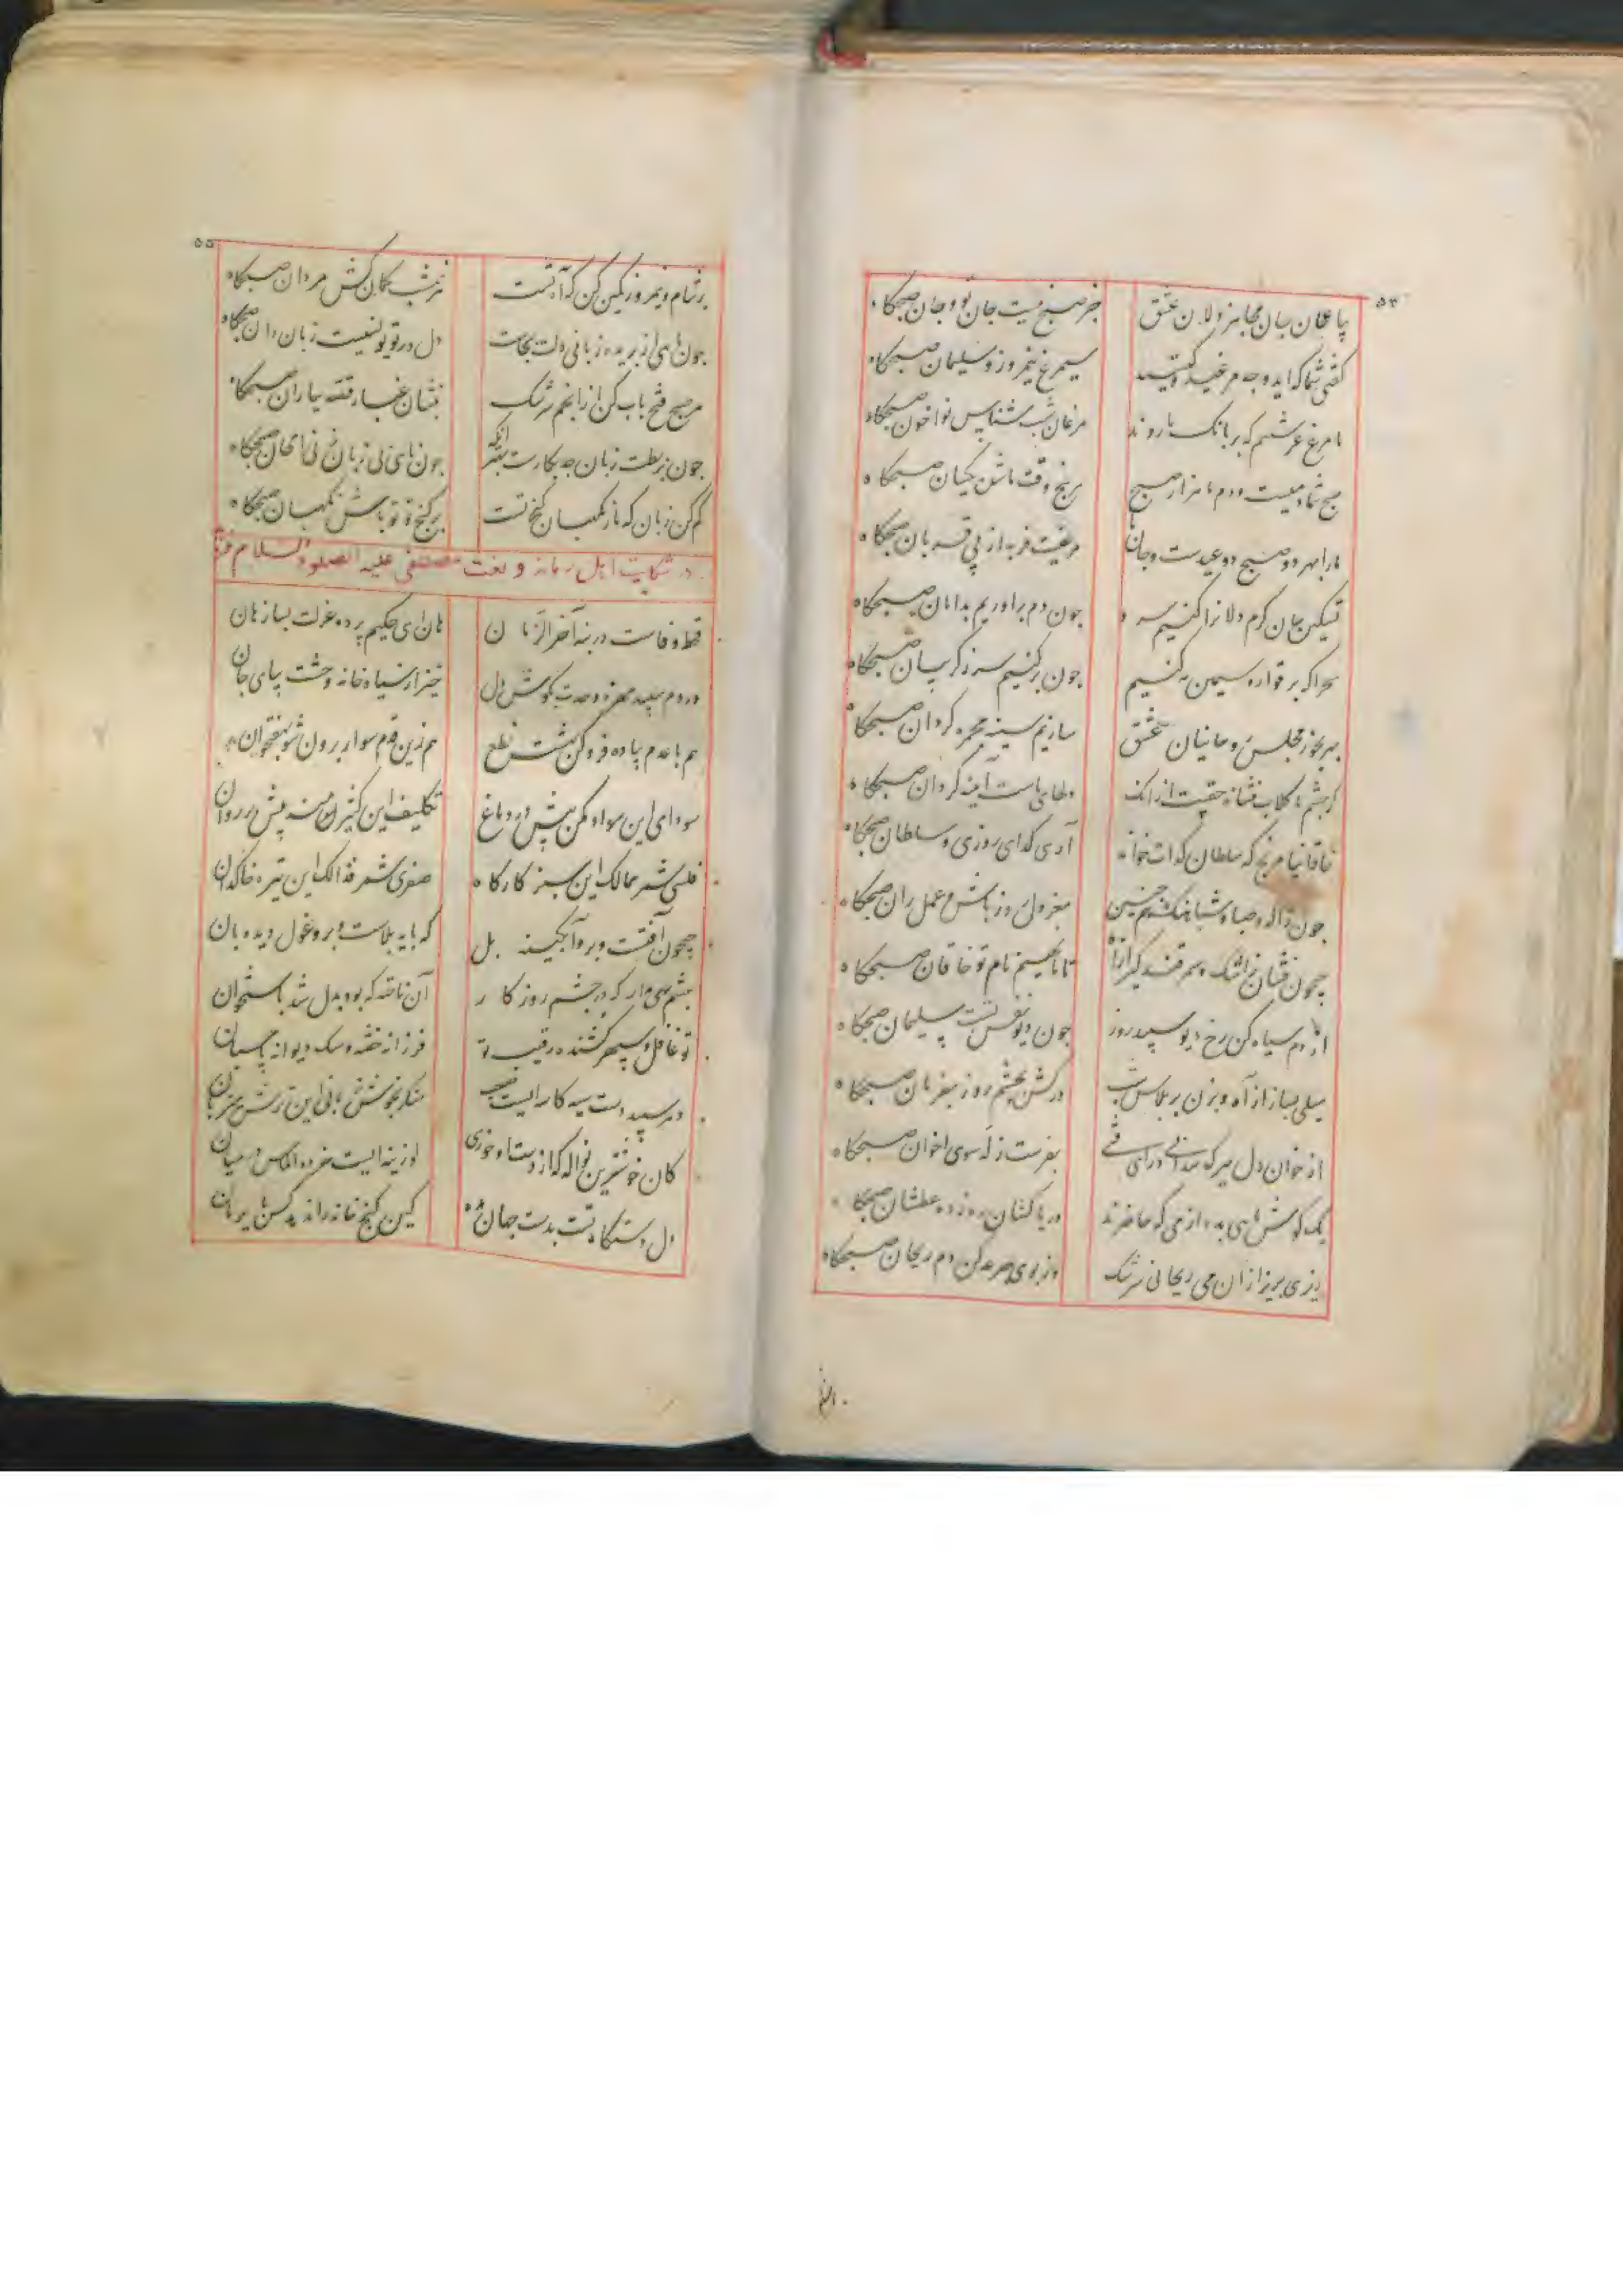 ۵۴
پا عقلان بیان مجاهز دلان عشق جز صبح نیست جان تو و جان صبحگاه
گفتی شما که اید و چه مرغید و کیستید سیمرغ نیمروز و سلیمان صبحگاه
ما مرغ عرشیم که بر بانگ ما روند مرغان شب شناس نواخوان صبحگاه
صبح شما دمیست و دم ما هزار صبح برنج وقت ماشدن کیهان صبحگاه
ما را بهر دو صبح دو عیدست و جان ما مرغیست فربه از پی قربان صبحگاه
تسکین جان کرم دلان را کنیم سرد چون دم براوریم بدامان صبحگاه
بحرا که بر قواره سیمین کنیم چون برکنیم سر ز گریبان صبحگاه
بهر بخور مجلس روحانیان عشق سازیم سینه مجمره گردان صبحگاه
گر چشم ما گلاب فشاند حقیست از انک دلهای ماست آینه گردان صبحگاه
خاقانیا مرنج که سلطان گدات خواند آری گدای روزی و سلطان صبحگاه
چون ژاله و صبا و شباهنگ همچنین معزول روز باش و عمل ران صبحگاه
جیحون فشان ز اشک و سمرقند گیر ازان تا ما نهیم نام تو خاقان صبحگاه
از دم سیاه کن رخ دیو سپید روز چون دیو نفس تست سلیمان صبحگاه
میلی بساز از آه و بزن بر پلاس شب درکش بچشم روز بفرمان صبحگاه
از خوان دل مبر که مدانی درای فی بفرست زله سوی اخوان صبحگاه
یک گوش ماهی بده از می که حاضرند دریا کشان ره زده عطشان صبحگاه
نزی بریز ازان می ریحانی سرشک وز بوی جرعه کن دم ریحان صبحگاه
۵۵
بر شام و نیمروز کمین کن که آه تست ترش کمان کش مردان صبحگاه
چون ماهی از بریده زبانی دلت بجاست دل در تو یونسیست زبان دان صبحگاه
هر صبح فتح باب کن از انجم سرشک بنشان غبار فتنه بیاران صبحگاه
چون بربطت زبان چه بکارست بهتر انکه چون نای بی زبان زنی الحان صبحگاه
کم کن زبان که مار نگهبان گنج تست بر گنج فقر باش نگهبان صبحگاه
در شکایت اهل زمانه و نعت مصطفی علیه الصلوة السلام
قحط وفاست در بنه آخر الزمان هان ای حکیم پرده عزلت بساز هان
در دم سپید مهره وحدت بگوش دل خیز از سیاه خانه وحشت بپای جان
هم با عدم پیاده فرو کن بهشت نطع هم زین قدم سوار برون شو بهفتخوان
سودای این سواد مکن بیش در دماغ تکلیف این کثیف منه پیش بر روان
فلسی شمر ممالک این سبز کارگاه صفری شمر فذالک این تیره خاکدان
جیحون آفتست و بر و آبگینه پل که پایه بلاست و بر و غول دیده بان
چشم بهی مدار که در چشم روزگار آن ناخنه که بود بدل شد باستخوان
تو غافل و سپهر کشنده رقیب تو فرزانه خفته و سگ دیوانه پاسبان
دهر سپید دست سیه کاسه ایست منگر بخوش زبانی این ترش میزبان
کان خوشترین نواله که از دست او خوری لوزینه ایست خرده الماس در میان
دل دستگاه تست بدست جهان مده کین گنج خانه را ندهد کس برایگان
دان